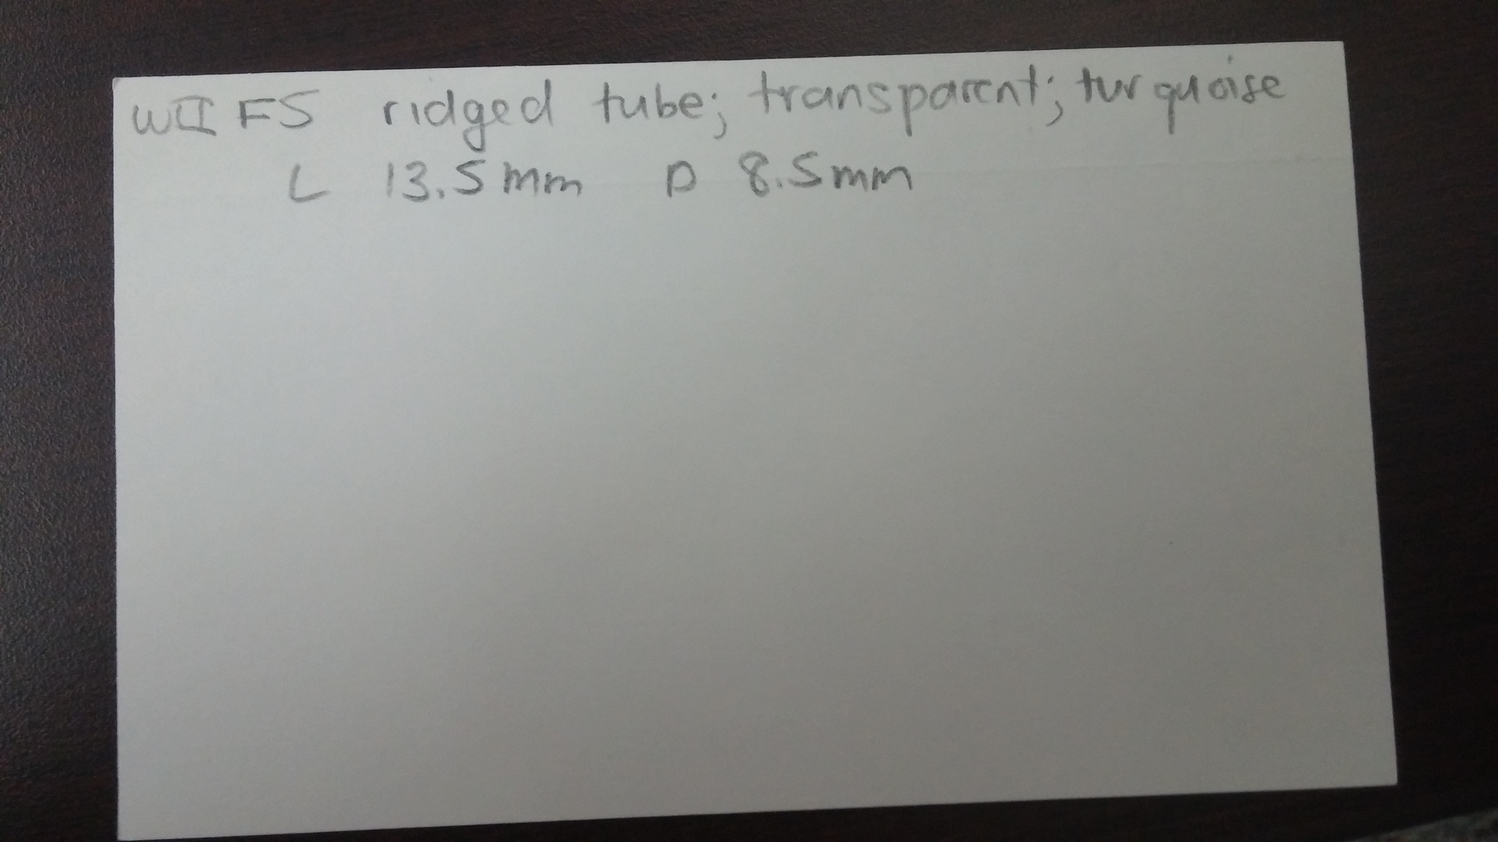 WII FS ridged tube; transparent; turquoise
L 13.5mm D 8.5mm